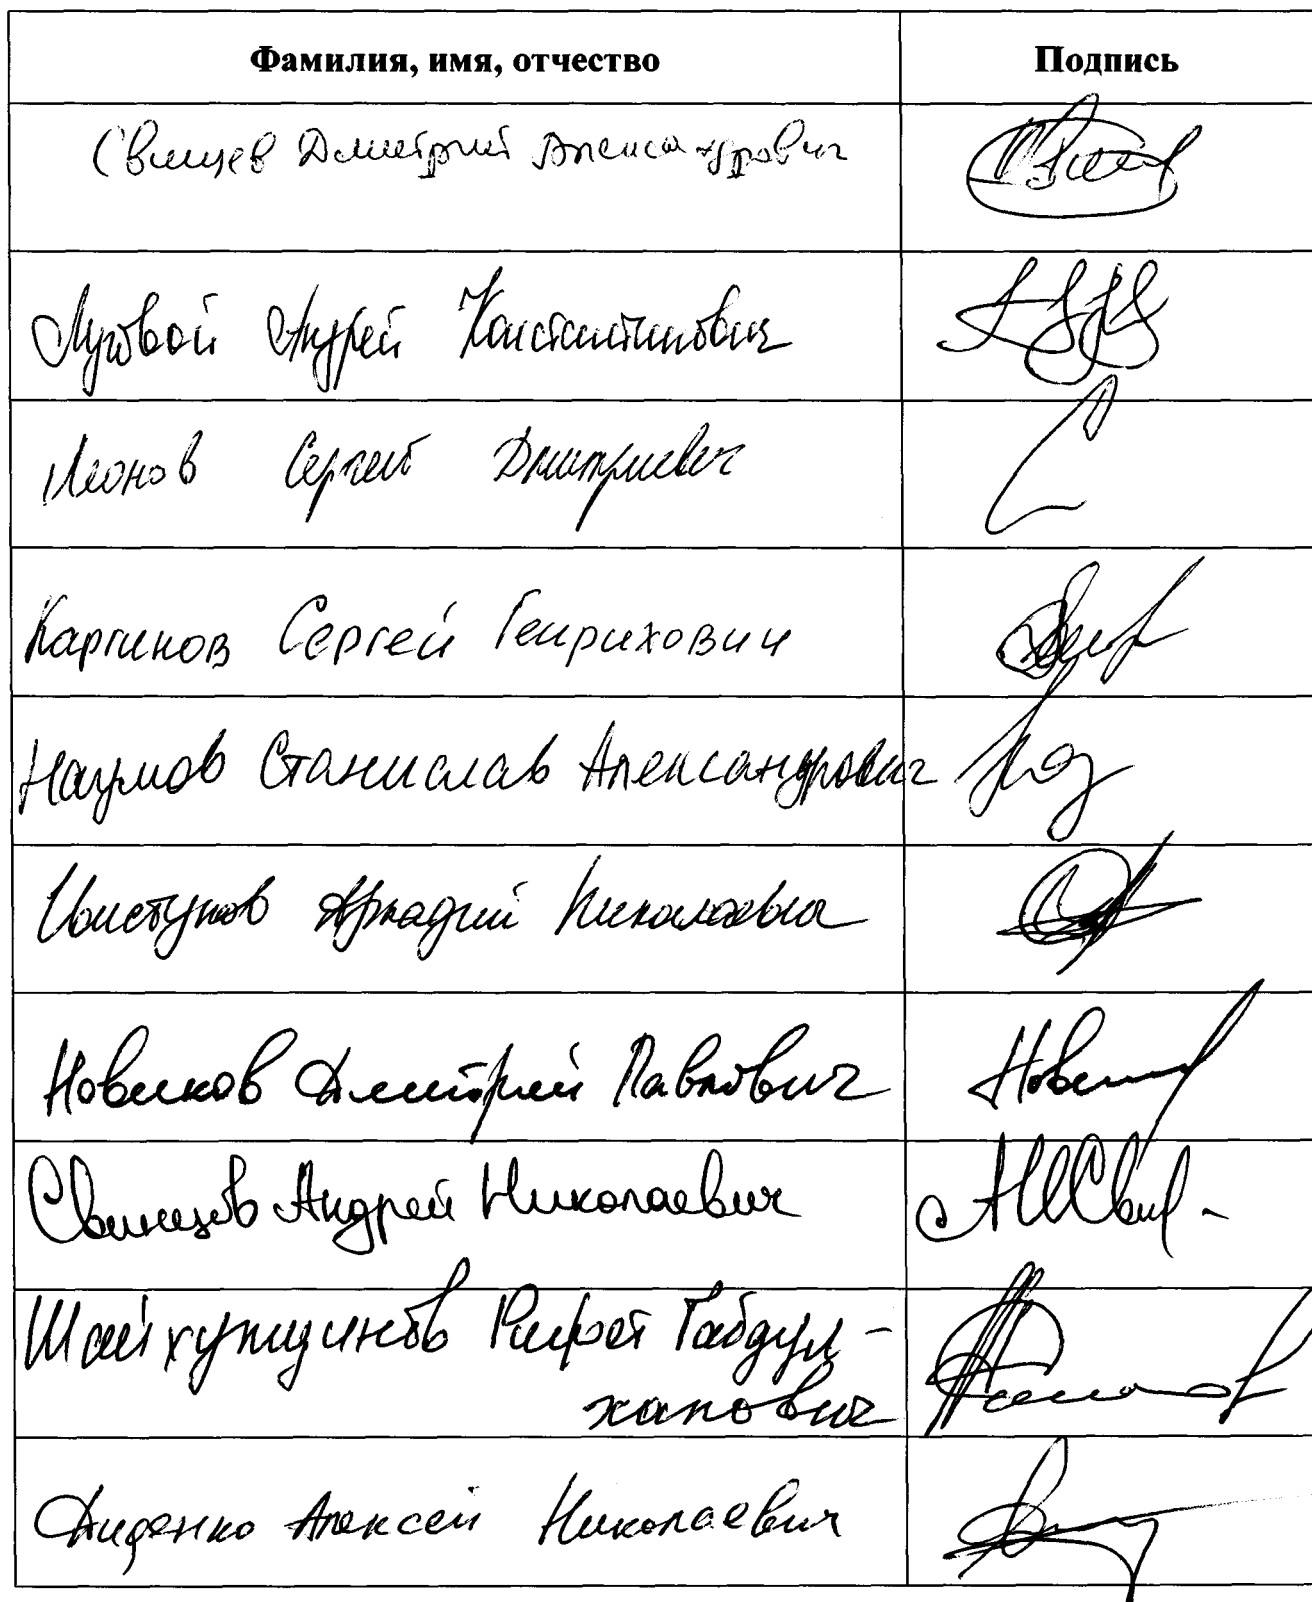 Фамилия, имя, отчество Подпись
Свищев Дмитрий Александрович
Луговой Андрей Константинович
Леонов Сергей Дмитриевич
Каргинов Сергей Генрихович
Наумов Станислав Александрович
Свистунов Аркадий Николаевич
Новиков Дмитрий Павлович Новик
Свинцов Андрей Николаевич АНСвин
Шайхутдинов Рифат Габдул-
хакович
Диденко Алексей Николаевич